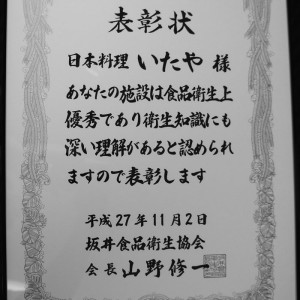 表彰状
日本料理 いたや 様
あなたの施設は食品衛生上
優秀であり衛生知識にも
深い理解があると認められ
ますので表彰します
平成27年11月2日
坂井食品衛生協会
会長 山野修一